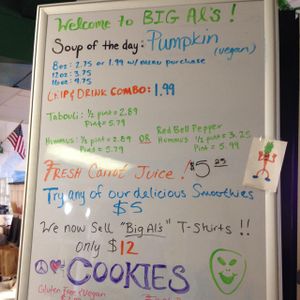 Welcome to BIG Al's!
Soup of the day: Pumpkin
(vegan)
8oz: 2.75 or 1.99 w/menu purchase
12oz: 3.75
16oz: 4.75
CHIP & DRINK COMBO: 1.99
Tabouli: 1/2 pint = 2.89
Pint = 5.79
Hummus: 1/2 pint = 2.89 OR Red Bell Pepper
Pint = 5.79 Hummus: 1/2 pint = 3.25
Pint = 5.99
FRESH Carrot Juice! $5.25
Try any of our delicious Smoothies
$5
We now Sell "Big Al's" T-Shirts!!
only $12
COOKIES
Gluten Free & Vegan